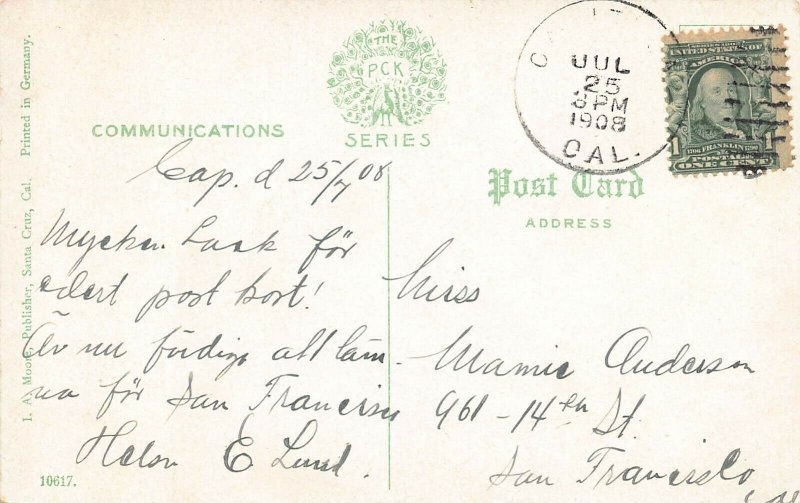 I. A. Moore, Publisher, Santa Cruz, Cal. Printed in Germany.
COMMUNICATIONS
THE
PCK
SERIES
Cap. d 25/7 08
Mycken tack för
edert post kort!
Är nu färdiga att läm-
na för San Francisco
E Lund.
10617.
JUL
25
8 PM
1908
CAL.
SERIES 1902
UNITED STATES OF
AMERICA
1706 FRANKLIN 1790
POSTAGE
1 ONE CENT 1
Post Card
ADDRESS
Miss
Mamie Anderson
961 - 14th St.
San Francisco